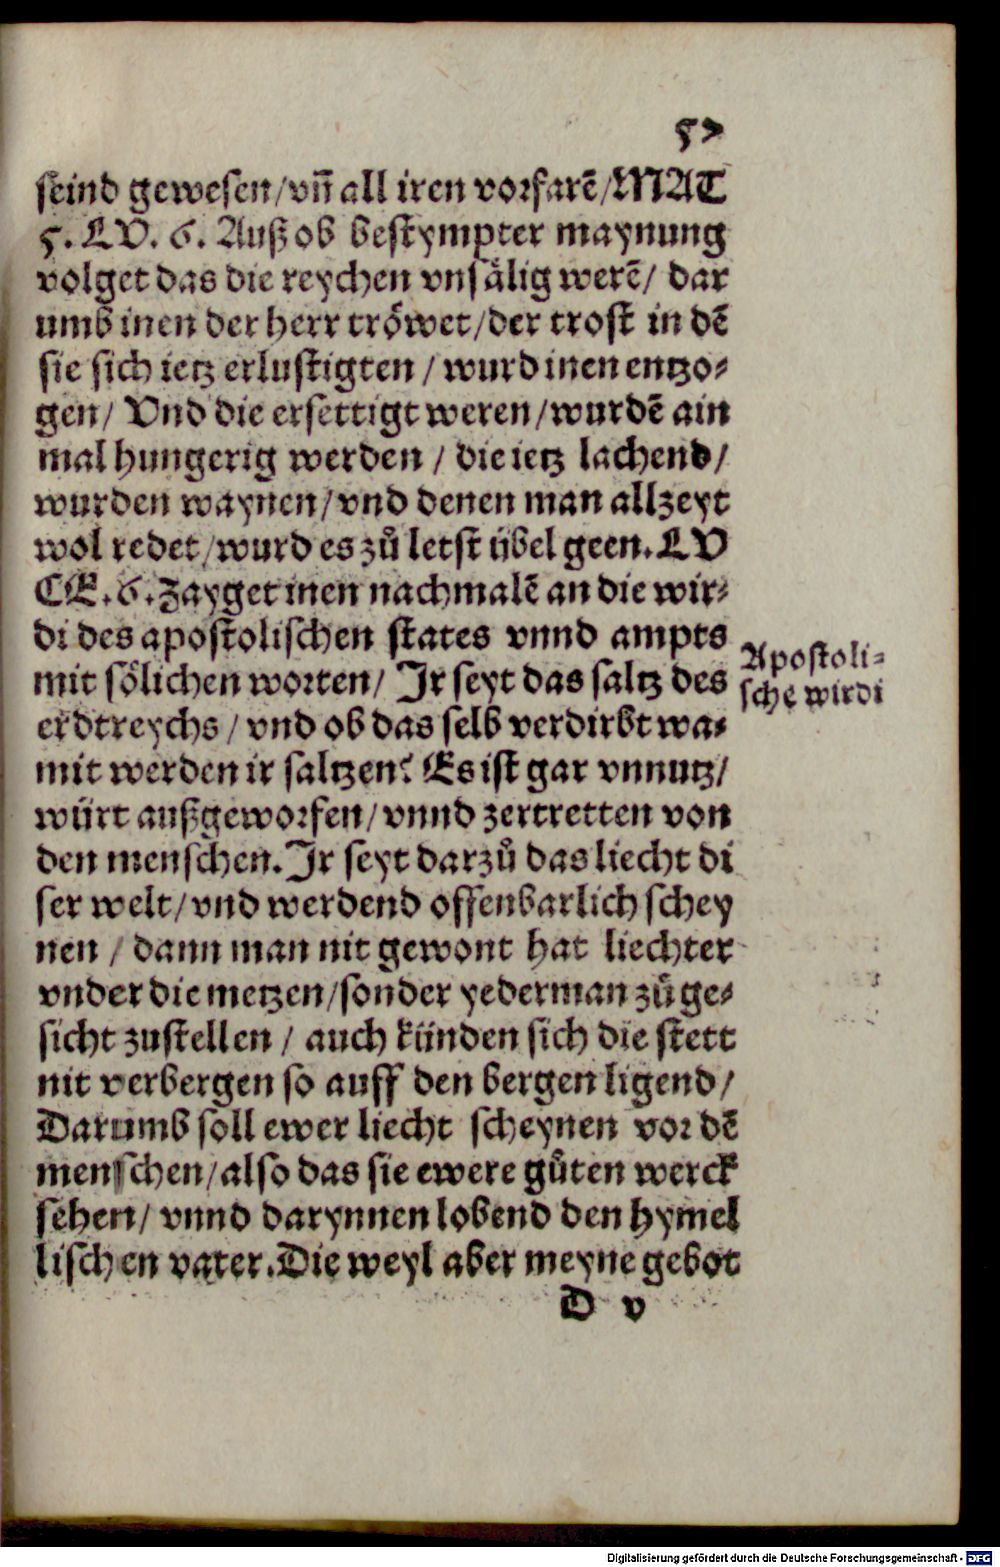 57
seind gewesen/vñ all iren vorfarẽ/MAT
5. LV. 6. Auß ob bestympter maynung
volget das die reychen vnsälig werẽ/ dar
umb inen der herr tröwet/der trost in dẽ
sie sich ietz erlustigten / wurd inen entzo⸗
gen/ Vnd die ersettigt weren/wurdẽ ain
mal hungerig werden / die ietz lachend/
wurden waynen/vnd denen man allzeyt
wol redet/wurd es zů letst übel geen. LV
CE. 6. Zayget inen nachmalẽ an die wir⸗
di des apostolischen states vnnd ampts
mit sölichen worten/ Jr seyt das saltz des
erdtreychs / vnd ob das selb verdirbt wa⸗
mit werden ir saltzen? Es ist gar vnnutz/
würt außgeworfen/vnnd zertretten von
den menschen. Jr seyt darzů das liecht di
ser welt/vnd werdend offenbarlich schey
nen / dann man nit gewont hat liechter
vnder die metzen/sonder yederman zů ge⸗
sicht zustellen / auch künden sich die stett
nit verbergen so auff den bergen ligend/
Darumb soll ewer liecht scheynen vor dẽ
menschen/also das sie ewere gůten werck
sehen/ vnnd darynnen lobend den hymel
lischen vater. Die weyl aber meyne gebot
D v
Apostoli⸗
sche wirdi
Digitalisierung gefördert durch die Deutsche Forschungsgemeinschaft - DFG